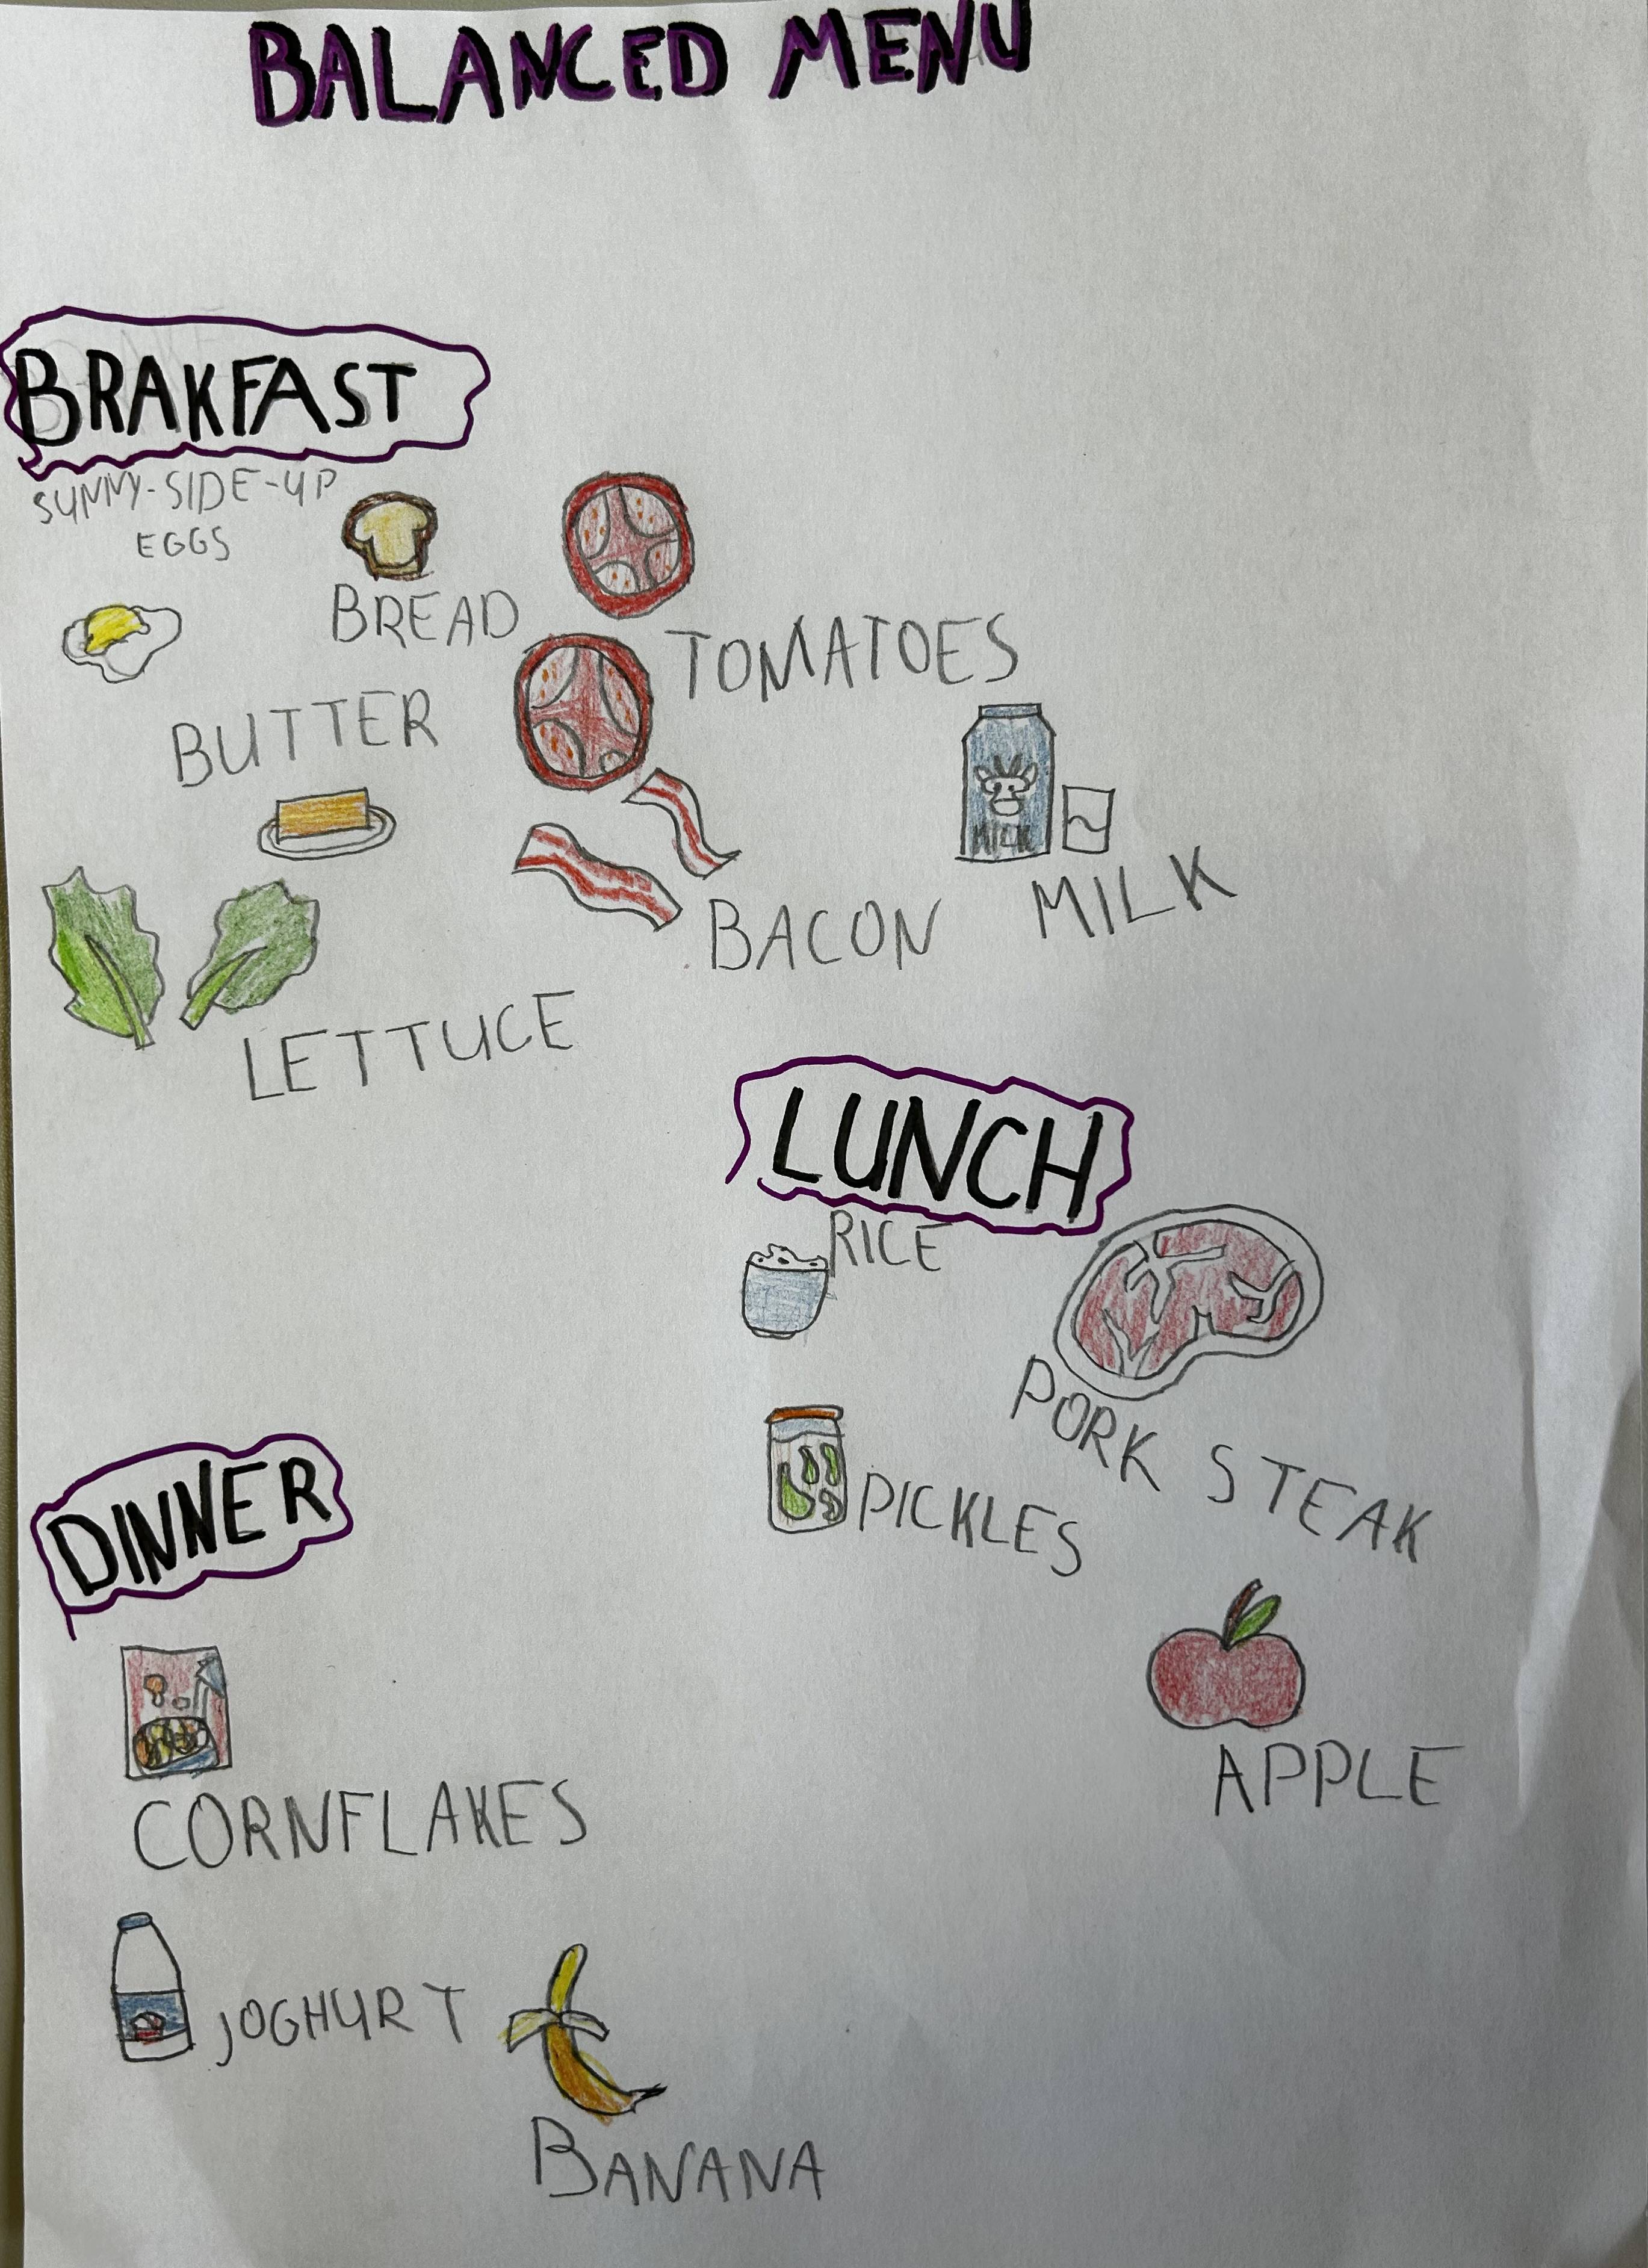 BALANCED MENU
BRAKFAST
SUNNY-SIDE-UP
EGGS
BREAD
TOMATOES
BUTTER
MILK
MILK
BACON
LETTUCE
LUNCH
RICE
PORK STEAK
PICKLES
APPLE
DINNER
CORNFLAKES
JOGHURT
BANANA